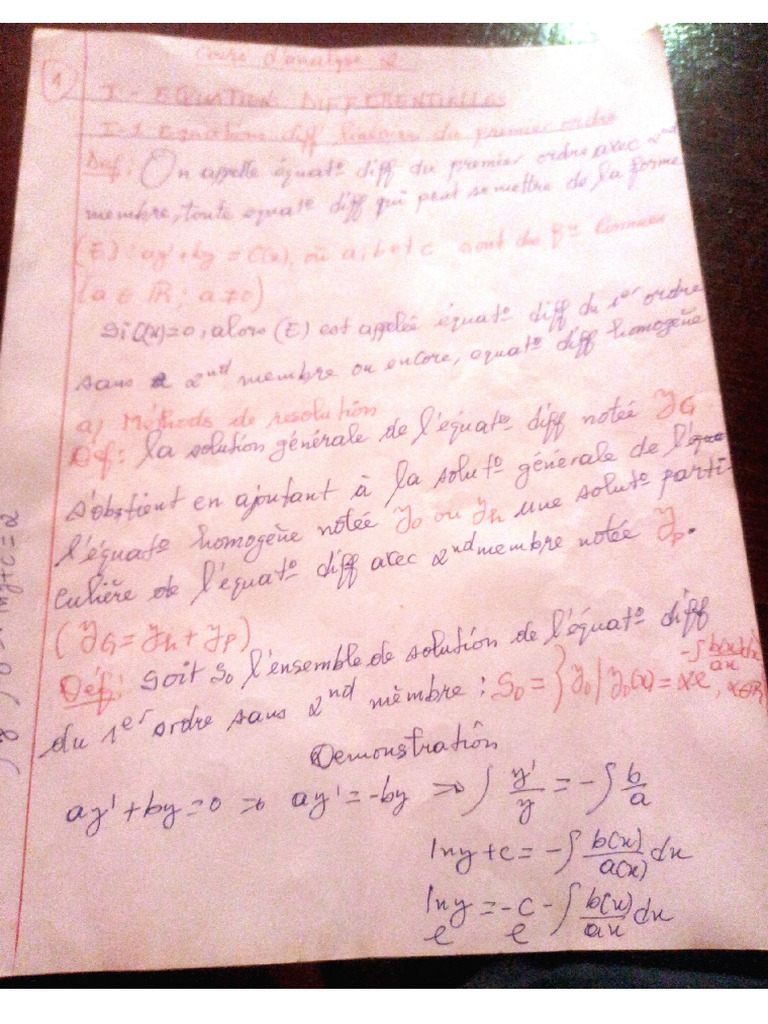 Cours d'analyse 2
1
I - EQUATIONS DIFFERENTIELLES
I-1 Equations diff linéaires du premier ordre
Def: On appelle équatº diff du premier ordre avec 2nd
membre, toute equatº diff qui peut se mettre de la forme
(E): ay' + by = C(x), où a, b et c sont des linéaires
(a ∈ R ; a≠0)
Si C(x)=0, alors (E) est appelée équatº diff du 1er ordre
sans 2nd membre ou encore, equatº diff homogène
a) Méthode de resolution
Def: la solution générale de l'équatº diff notée yG
s'obtient en ajoutant à la solutº générale de
l'équatº homogène notée y0 ou yh une solutº parti-
culière de l'équatº diff avec 2nd membre notée yp.
(yG = yh + yp)
Déf: Soit S0 l'ensemble de solution de l'équatº diff
du 1er ordre sans 2nd mèmbre : S0 = } y0 / y0(x) = αe^-∫ b(x)dx/ax, α∈R
Demonstration
ay' + by = 0 => ay' = -by => ∫ y'/y = -∫ b/a
lny + c = -∫ b(x)/a(x) dx
e^lny = e^-c -∫ b(x)/ax dx
lny + c = 2